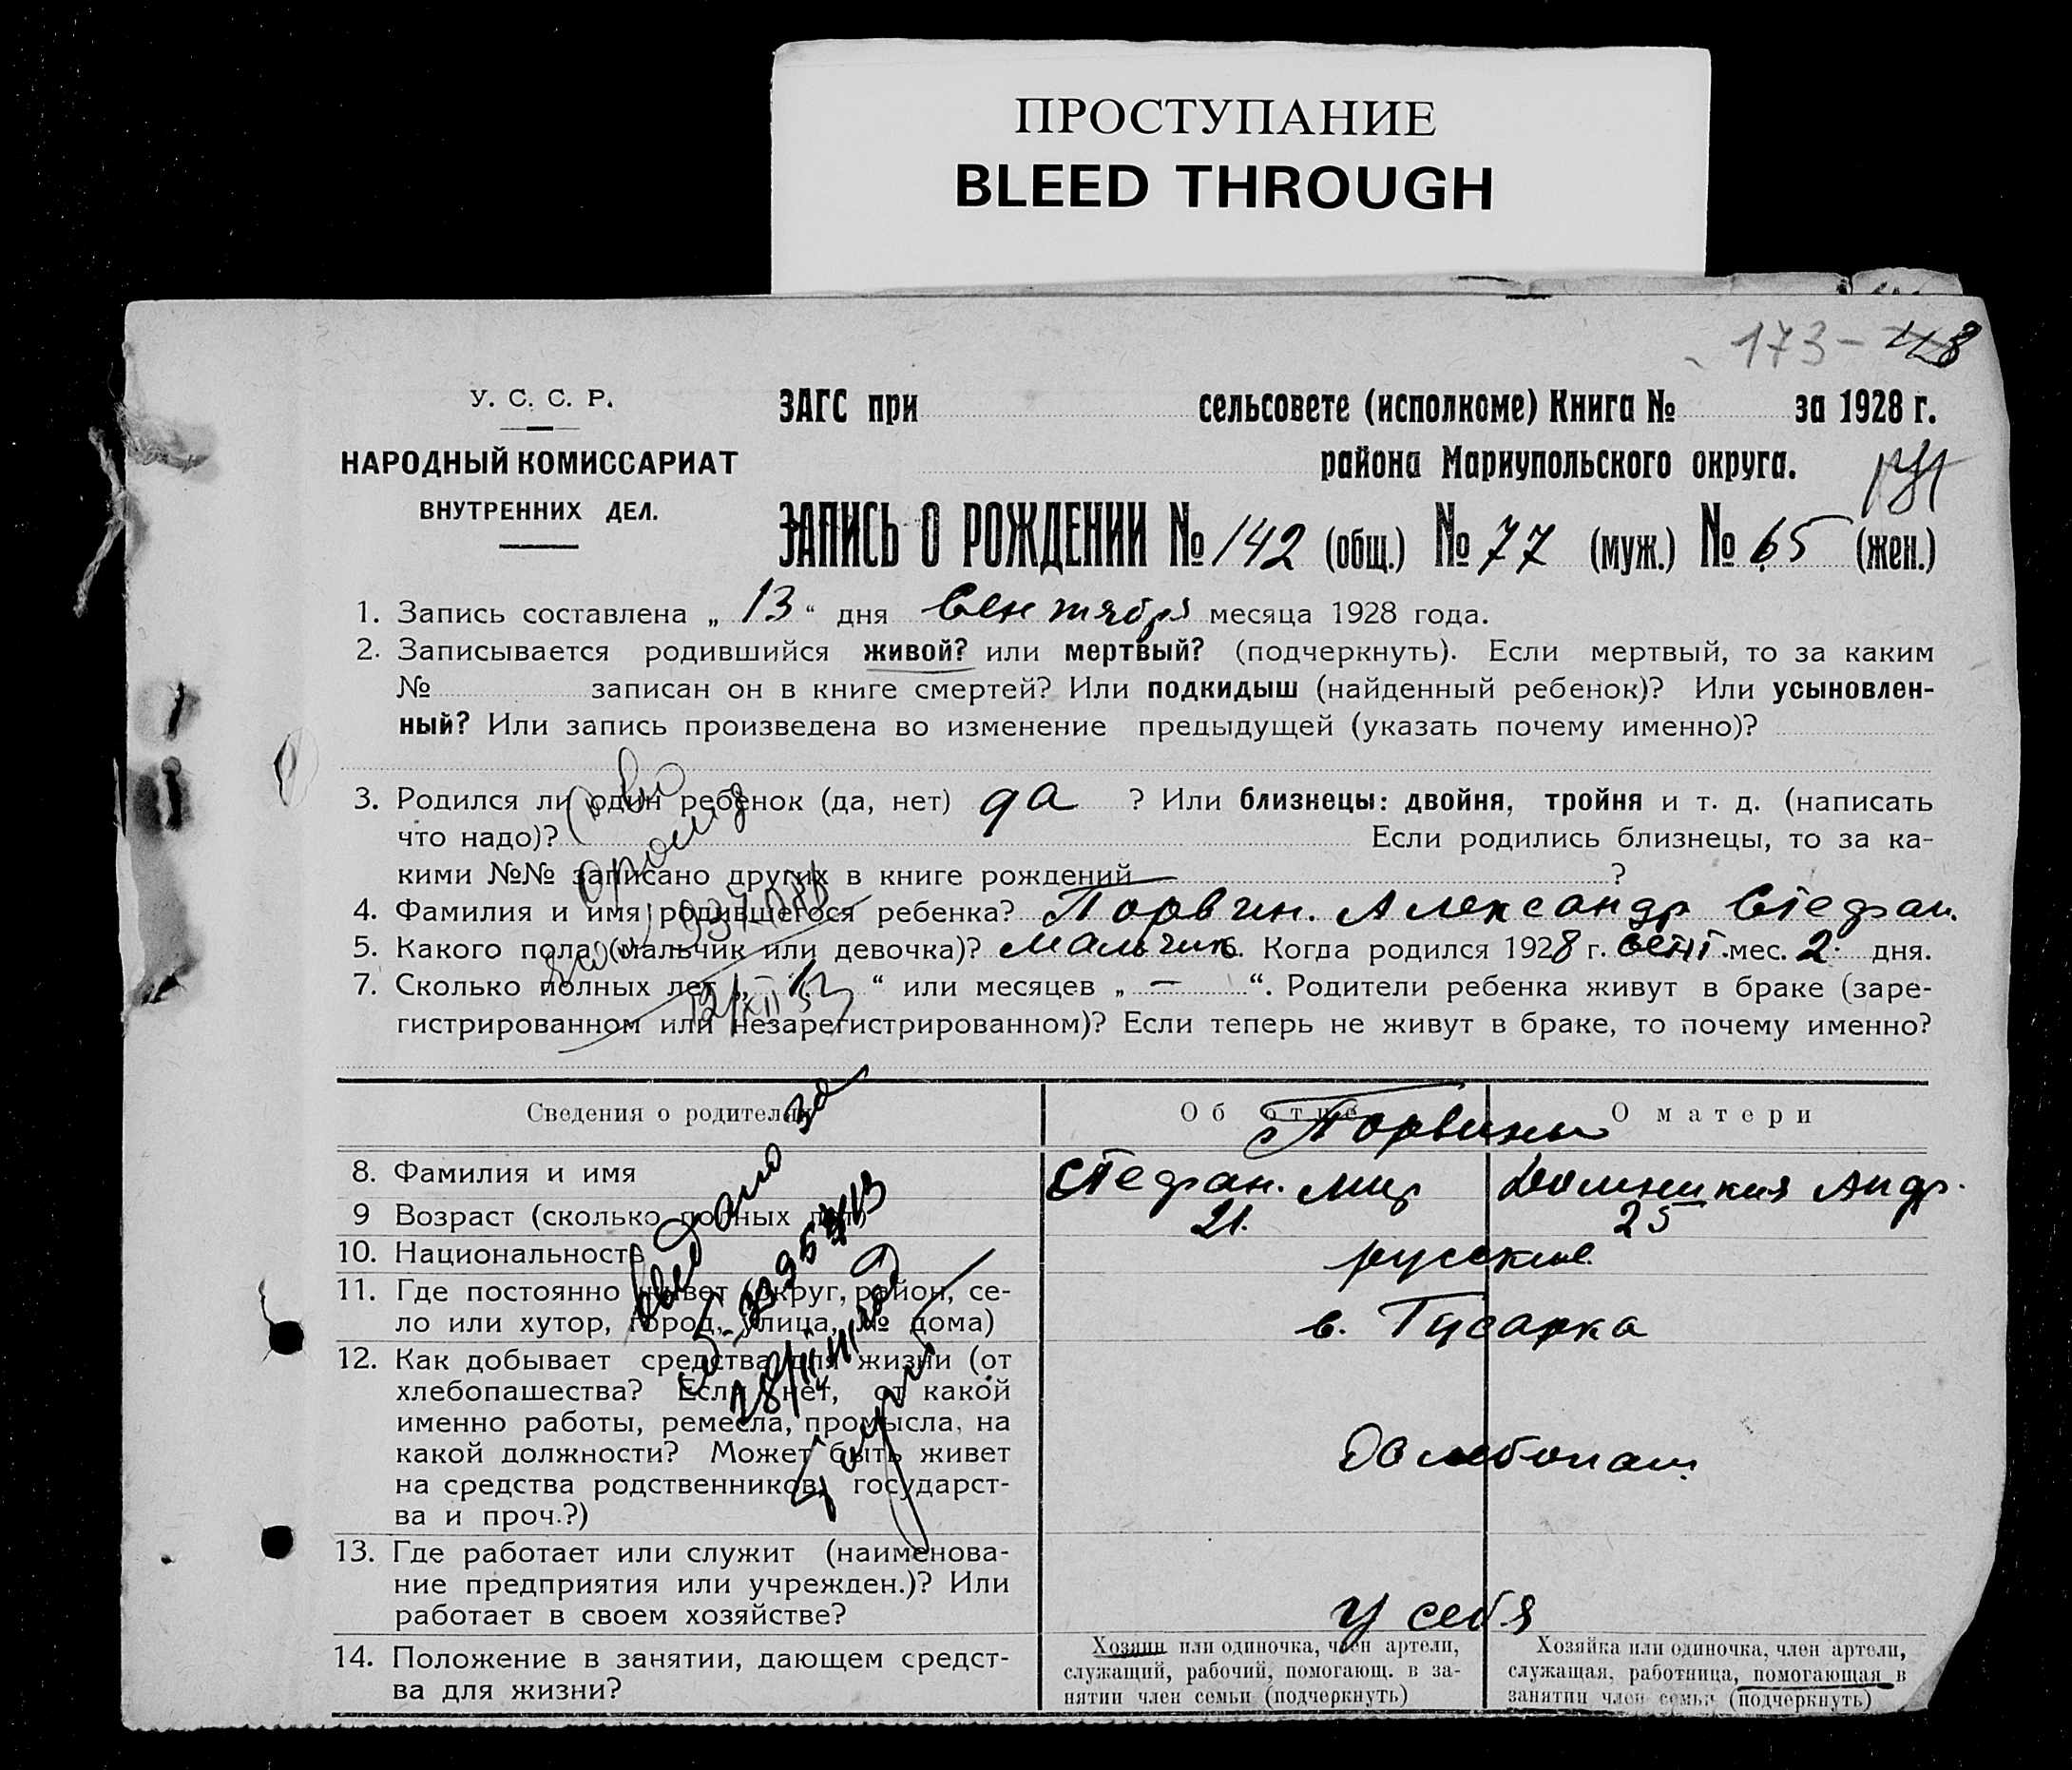 ПРОСТУПАНИЕ
BLEED THROUGH
173 - 118
У. С. С. Р.
НАРОДНЫЙ КОМИССАРИАТ
ВНУТРЕННИХ ДЕЛ.
ЗАГС при сельсовете (исполкоме) Книга № за 1928 г.
района Мариупольского округа.
ЗАПИСЬ О РОЖДЕНИИ № 142 (общ.) № 77 (муж.) № 65 (жен.)
1. Запись составлена „ 13 “ дня Сентября месяца 1928 года.
2. Записывается родившийся живой? или мертвый? (подчеркнуть). Если мертвый, то за каким
№ записан он в книге смертей? Или подкидыш (найденный ребенок)? Или усыновлен-
ный? Или запись произведена во изменение предыдущей (указать почему именно)?
3. Родился ли один ребенок (да, нет) да ? Или близнецы: двойня, тройня и т. д. (написать
что надо)? Если родились близнецы, то за ка-
кими №№ записано других в книге рождений ?
4. Фамилия и имя родившегося ребенка? Порвин. Александр Стефан.
5. Какого пола (мальчик или девочка)? Мальчик 6. Когда родился 1928 г. сент. мес. 2 дня.
7. Сколько полных лет „ “ или месяцев „ — “. Родители ребенка живут в браке (заре-
гистрированном или незарегистрированном)? Если теперь не живут в браке, то почему именно?
Сведения о родителях Об отце О матери
Порвины
8. Фамилия и имя Стефан. Андр.
9 Возраст (сколько полных лет) 21. 25
10. Национальность русские
11. Где постоянно живет (округ, район, се-
ло или хутор, город, улица, № дома) с.
12. Как добывает средства для жизни (от
хлебопашества? Если нет, от какой
именно работы, ремесла, промысла, на
какой должности? Может быть живет
на средства родственников, государст-
ва и проч.?)
13. Где работает или служит (наименова-
ние предприятия или учрежден.)? Или
работает в своем хозяйстве? У себя
14. Положение в занятии, дающем средст-
ва для жизни?
Хозяин или одиночка, член артели,
служащий, рабочий, помогающ. в за-
нятии член семьи (подчеркнуть)
Хозяйка или одиночка, член артели,
служащая, работница, помогающая в
занятии член семьи (подчеркнуть)